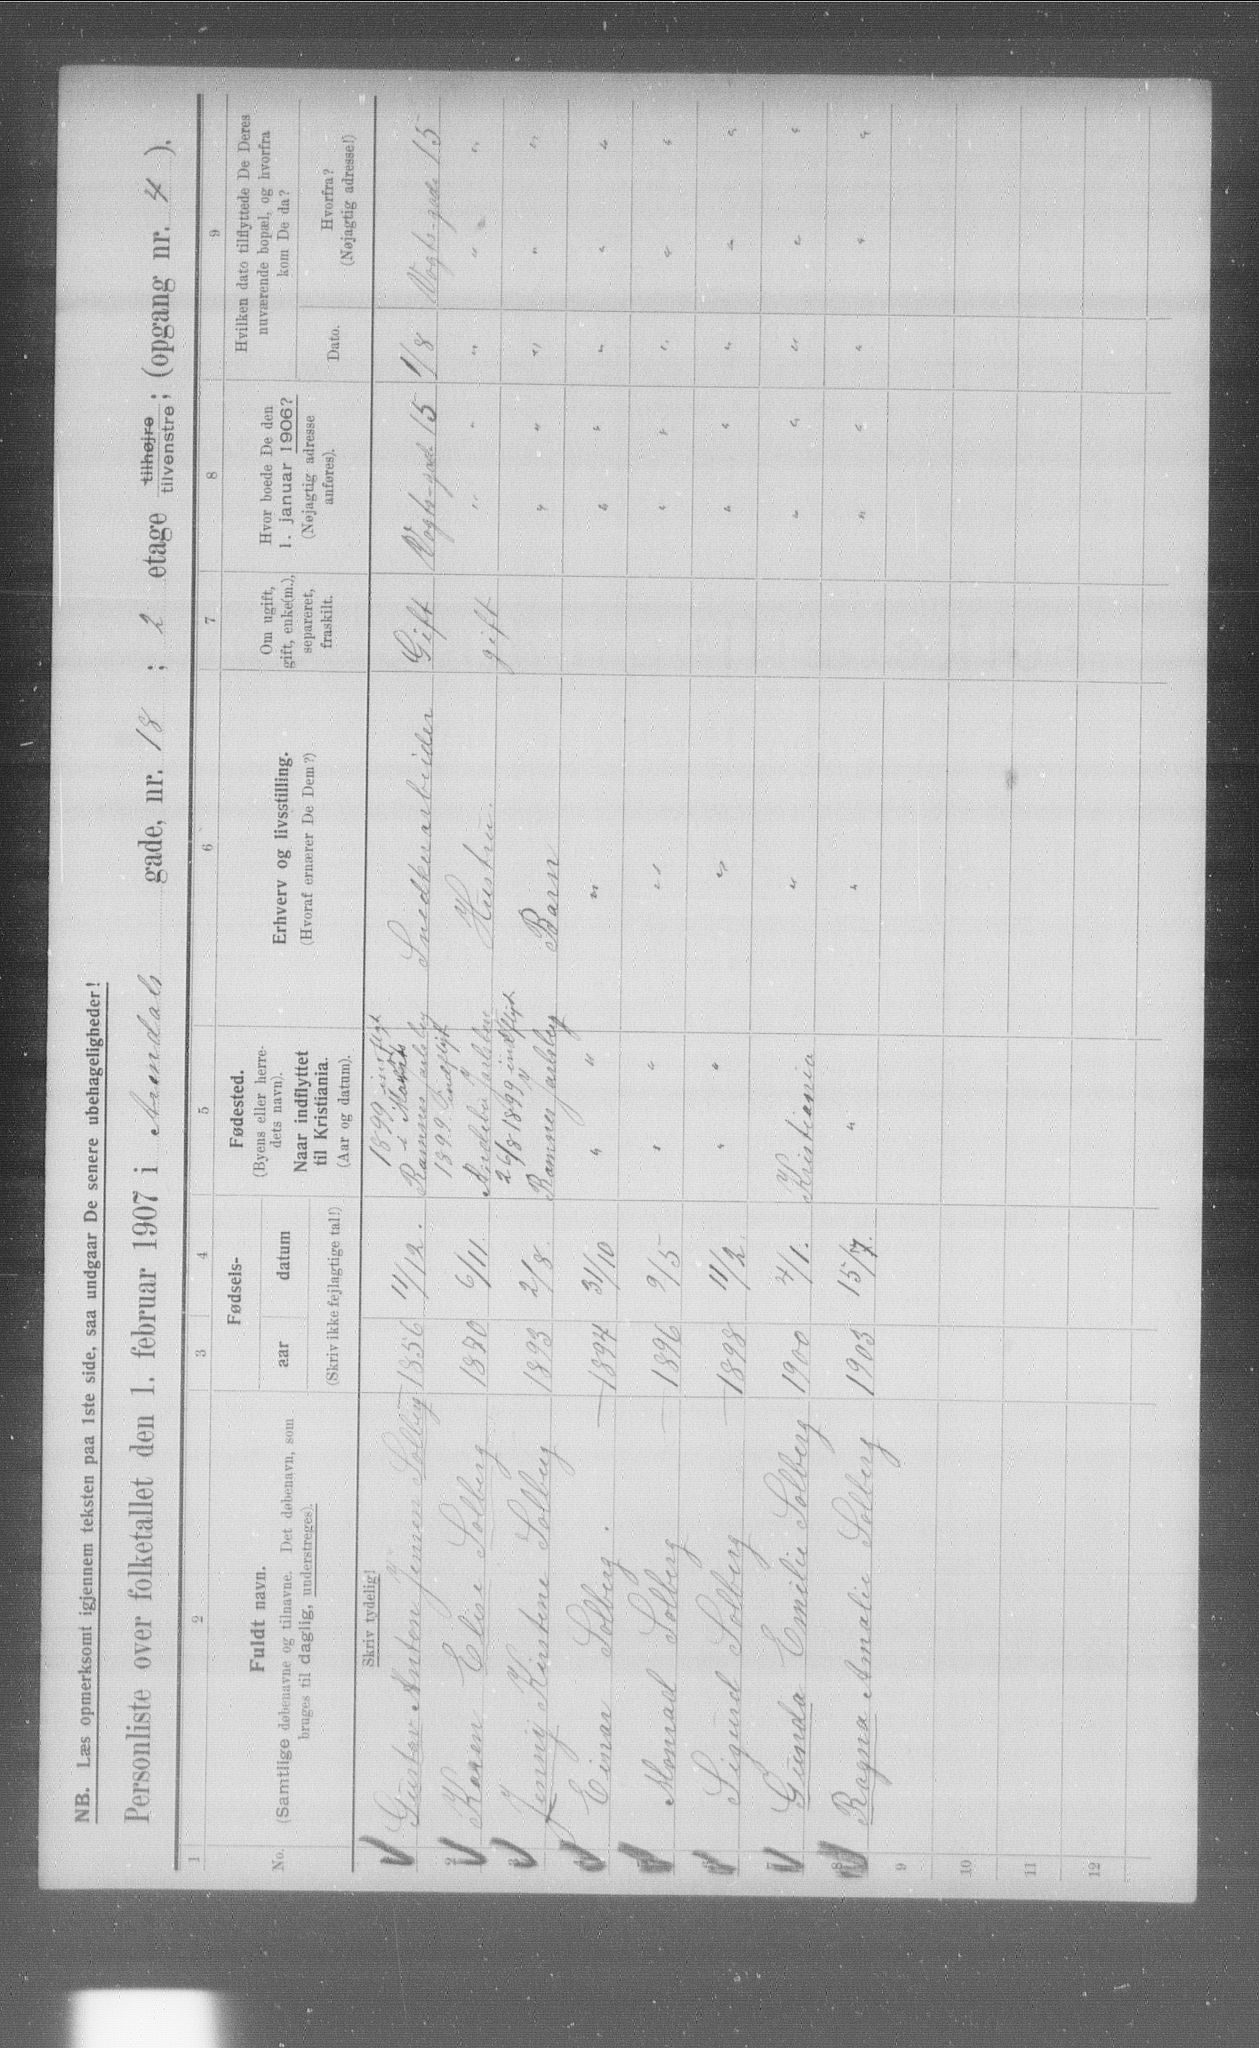 NB. Læs opmerksomt igjennem teksten paa 1ste side, saa undgaar De senere ubehageligheder!
Personliste over folketallet den 1. februar 1907 i Arendals gade, nr. 18 ; 2 etage tilhøjre tilvenstre; (opgang nr. 4 ).
1 2 3 4 5 6 7 8 9
No. Fuldt navn. (Samtlige døbenavne og tilnavne. Det døbenavn, som bruges til daglig, understreges).
Fødsels- aar datum (Skriv ikke fejlagtige tal!)
Fødested. (Byens eller herredets navn). Naar indflyttet til Kristiania. (Aar og datum).
Erhverv og livsstilling. (Hvoraf ernærer De Dem?)
Om ugift, gift, enke(m.), separeret, fraskilt.
Hvor boede De den 1. januar 1906? (Nøjagtig adresse anføres).
Hvilken dato tilflyttede De Deres nuværende bopæl, og hvorfra kom De da?
Dato. Hvorfra? (Nøjagtig adresse!)
Skriv tydelig!
1899 indflyt
Gustav Anton Jensen Solberg 1856 11/12. Ramnes Jarlsberg Snedkerarbeider Gift Vogts-gade 15 1/8 Vogts-gade 15
1899 indflyt
2 Karen Elise Solberg 1870 6/11. Andebu Jarlsberg Hustru. gift " " " " "
26/8 1899 indflyt
3 Jenny Kirstine Solberg 1893 2/8. Ramnes Jarlsberg Barn " " " " "
4 Einar Solberg. 1894 31/10 " " " " " " " "
5 Monrad Solberg 1896 9/5 " " " " " " " "
6 Sigurd Solberg 1898 11/2 " " " " " " " "
7 Gunda Emilie Solberg 1900 4/1. Kristiania " " " " " "
8 Ragna Amalie Solberg 1903 15/7. " " " " " " "
9
10
11
12